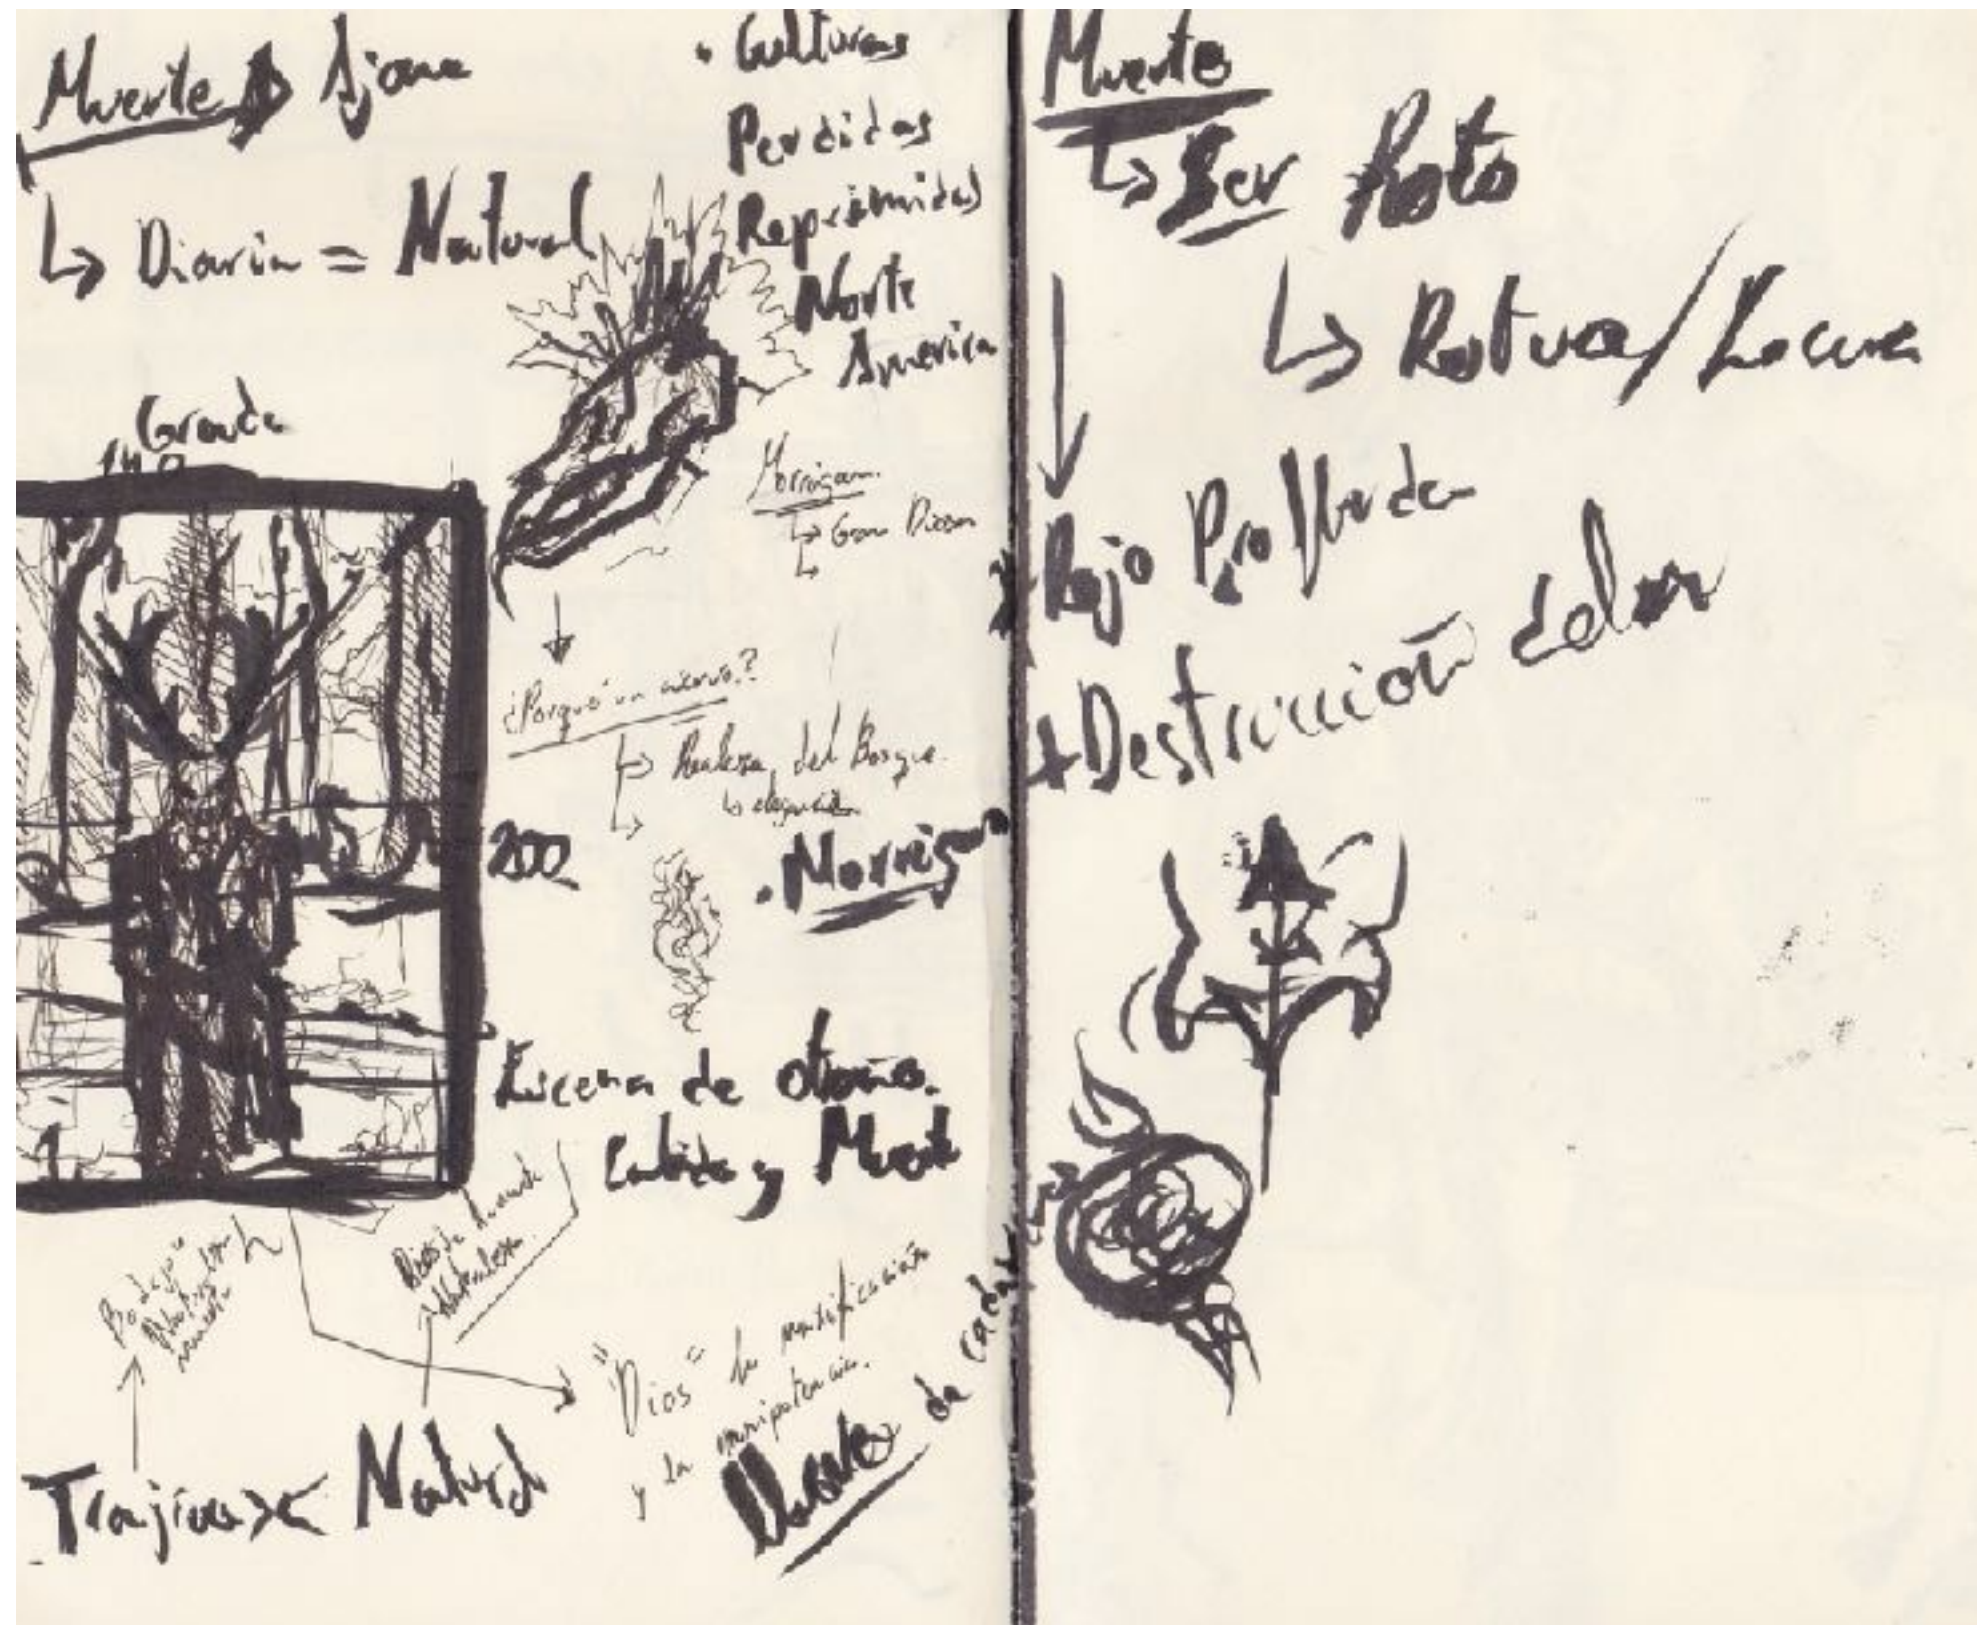 Muerte Ajena
↳ Diaria = Natural
• Culturas
Perdidas
Reprimidas
Norte
America
Grande
140
Morrigan.
↳ Gran Diosa
↳
¿Porqué un ciervo?
↳ Realeza del Bosque.
↳ elegancia
↳
200
• Morrigan
Escena de otoño.
Calida y Muerte
Dios de la muerte
Naturaleza.
"Dios" la mortificación
y la omnipotencia.
Natural
Muerte
↳ Ser Roto
↳ Rotura/Locura
Rojo Profundo
+ Destrucción dolor